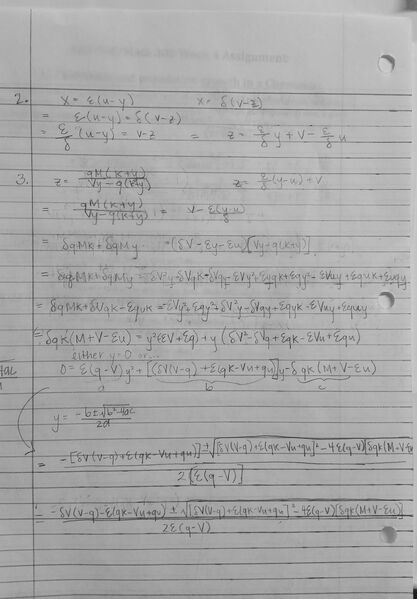 Assignment
2. x = ε(u-y)     x = δ(v-z)
= ε(u-y) = δ(v-z)
= ε/δ (u-y) = v-z     = z = ε/δ y + v - ε/δ u
3. z = qM(k+y) / Vy-q(k+y)     z = ε/δ (y-u) + v
= qM(k+y) / Vy-q(k+y) = v - ε(y-u)
= δqMk + δqMy = (δV - εy - εu)[Vy-q(k+y)]
= δqMk + δqMy = δV²y - δVqk - δVqy - εVy² + εyqk + εqy² - εVuy + εquk + εuqy
= δqMk + δVqk - εquk = εVy² + εqy² + δV²y - δVqy + εqyk - εVuy + εquy
= δqk(M+V-εu) = y²(εV+εq) + y(δV² - δVq + εqk - εVu + εqu)
either y=0 or...
0 = ε(q-V)y² + [δV(V-q) + ε(qk-Vu+qu)]y - δqk(M+V-εu)
a b c
y = -b ± √b²-4ac / 2a
= -[δV(V-q)+ε(qk-Vu+qu)] ± √[δV(V-q)+ε(qk-Vu+qu)]² - 4ε(q-V)[δqk(M+V-εu / 2[ε(q-V)]
= -δV(V-q)-ε(qk-Vu+qu) ± √[δV(V-q)+ε(qk-Vu+qu)]² - 4ε(q-V)[δqk(M+V-εu)] / 2ε(q-V)